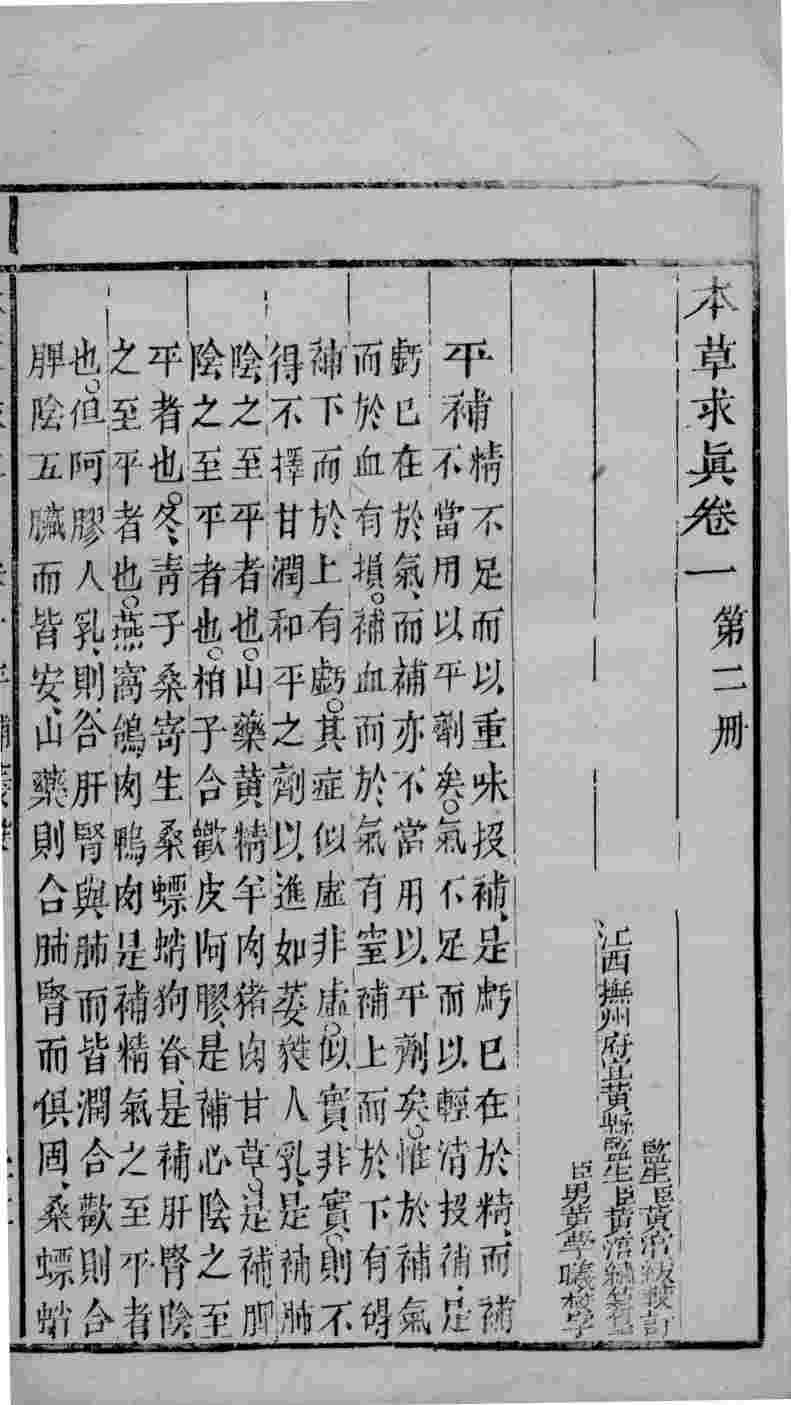 本草求眞卷一 第二册
監生臣黄宫紱較訂
江西撫州府宜黄縣監生臣黄宫繡纂
臣男黄學曦校字
平補
精不足而以重味投補、是虧已在於精、而補
不當用以平劑矣。氣不足而以輕清投補、是
虧已在於氣、而補亦不當用以平劑矣。惟於補氣
而於血有損。補血而於氣有窒補上而於下有碍
補下而於上有虧。其症似虛非虛。似實非實。則不
得不擇甘潤和平之劑以進如萎蕤人乳、是補肺
陰之至平者也。山藥黄精羊肉猪肉甘草。是補脾
陰之至平者也。柏子合歡皮阿膠、是補心陰之至
平者也。冬青子桑寄生桑螵蛸狗脊、是補肝腎陰
之至平者也。燕窩鴿肉鴨肉是補精氣之至平者
也。但阿膠人乳、則合肝腎與肺而皆潤合歡則合
脾陰五臟而皆安、山藥則合肺腎而俱固、桑螵蛸